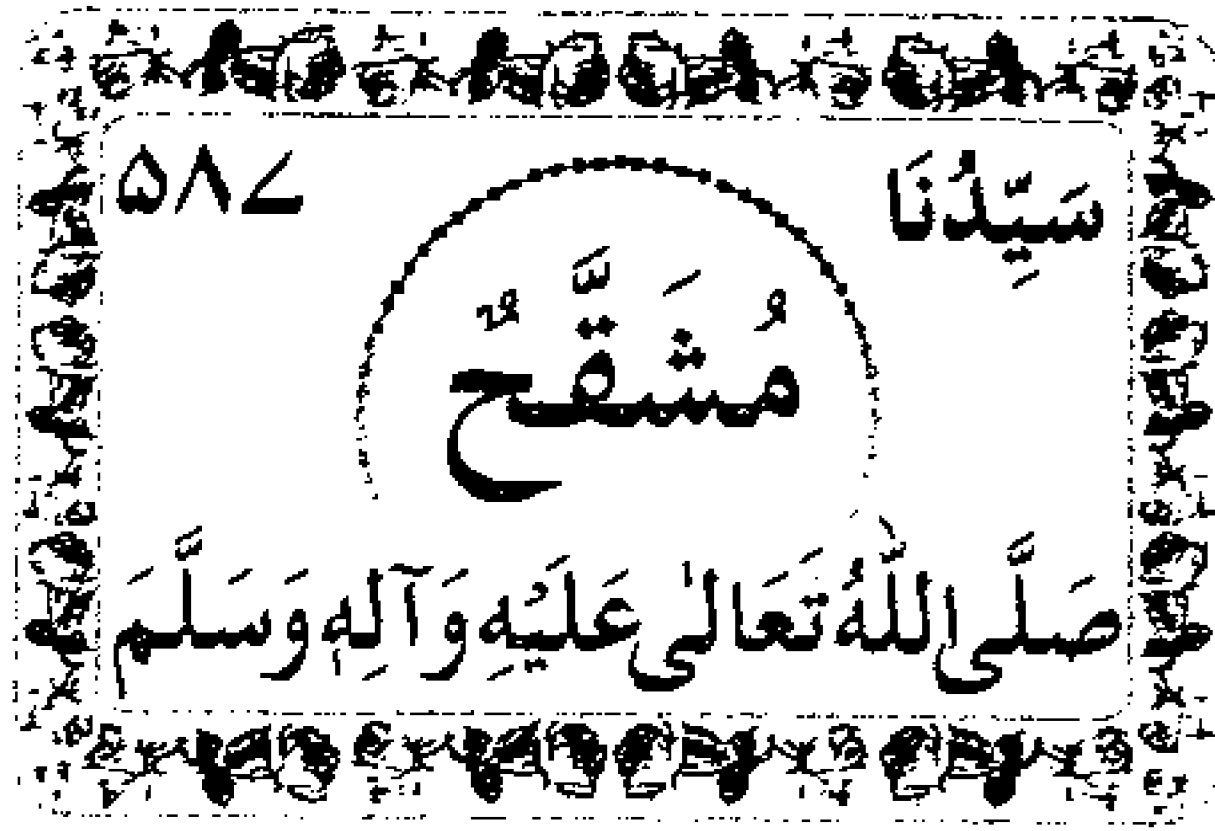 سَيِّدُنَا ۵۸۷
مُشَقَّحٌ
صَلَّى اللّٰهُ تَعَالٰى عَلَيْهِ وَآلِهٖ وَسَلَّمَ